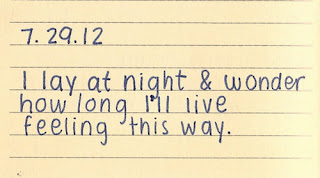 7.29.12
I lay at night & wonder
how long I'll live
feeling this way.